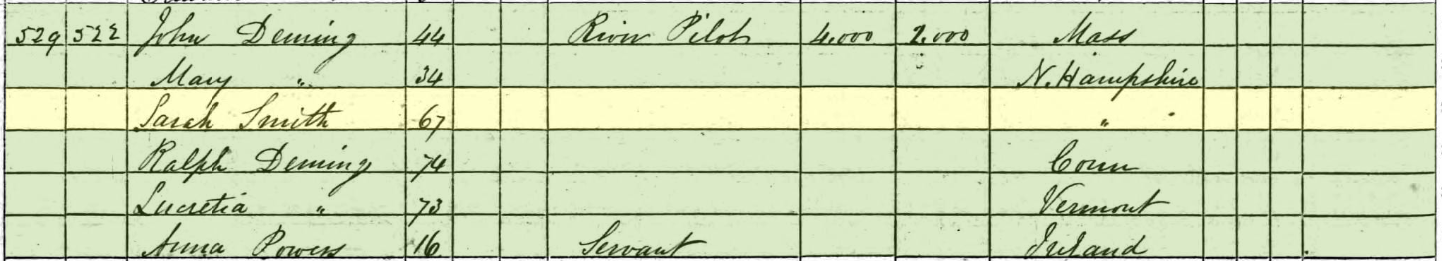 529 522 John Deming 44 River Pilot 4.000 2.000 Mass
Mary " 34 N. Hampshire
Sarah Smith 67 "
Ralph Deming 74 Conn
Lucretia " 73 Vermont
Anna Powers 16 Servant Ireland